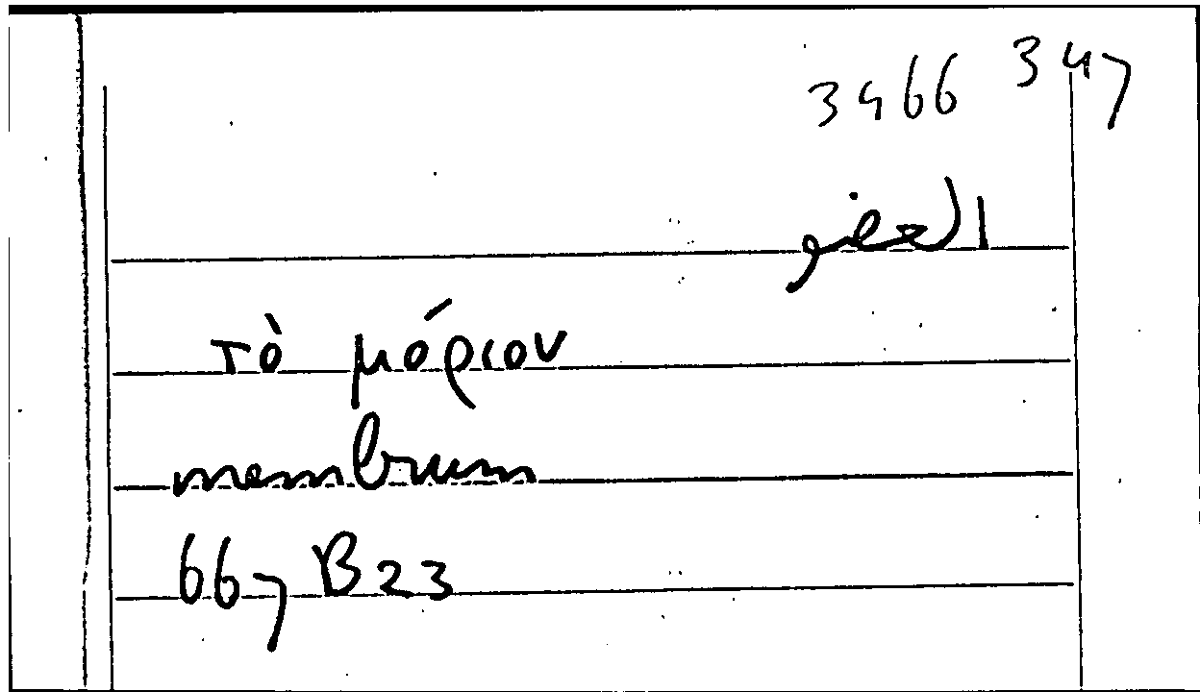 3466 347
العضو
τὸ μόριον
membrum
667 B 23